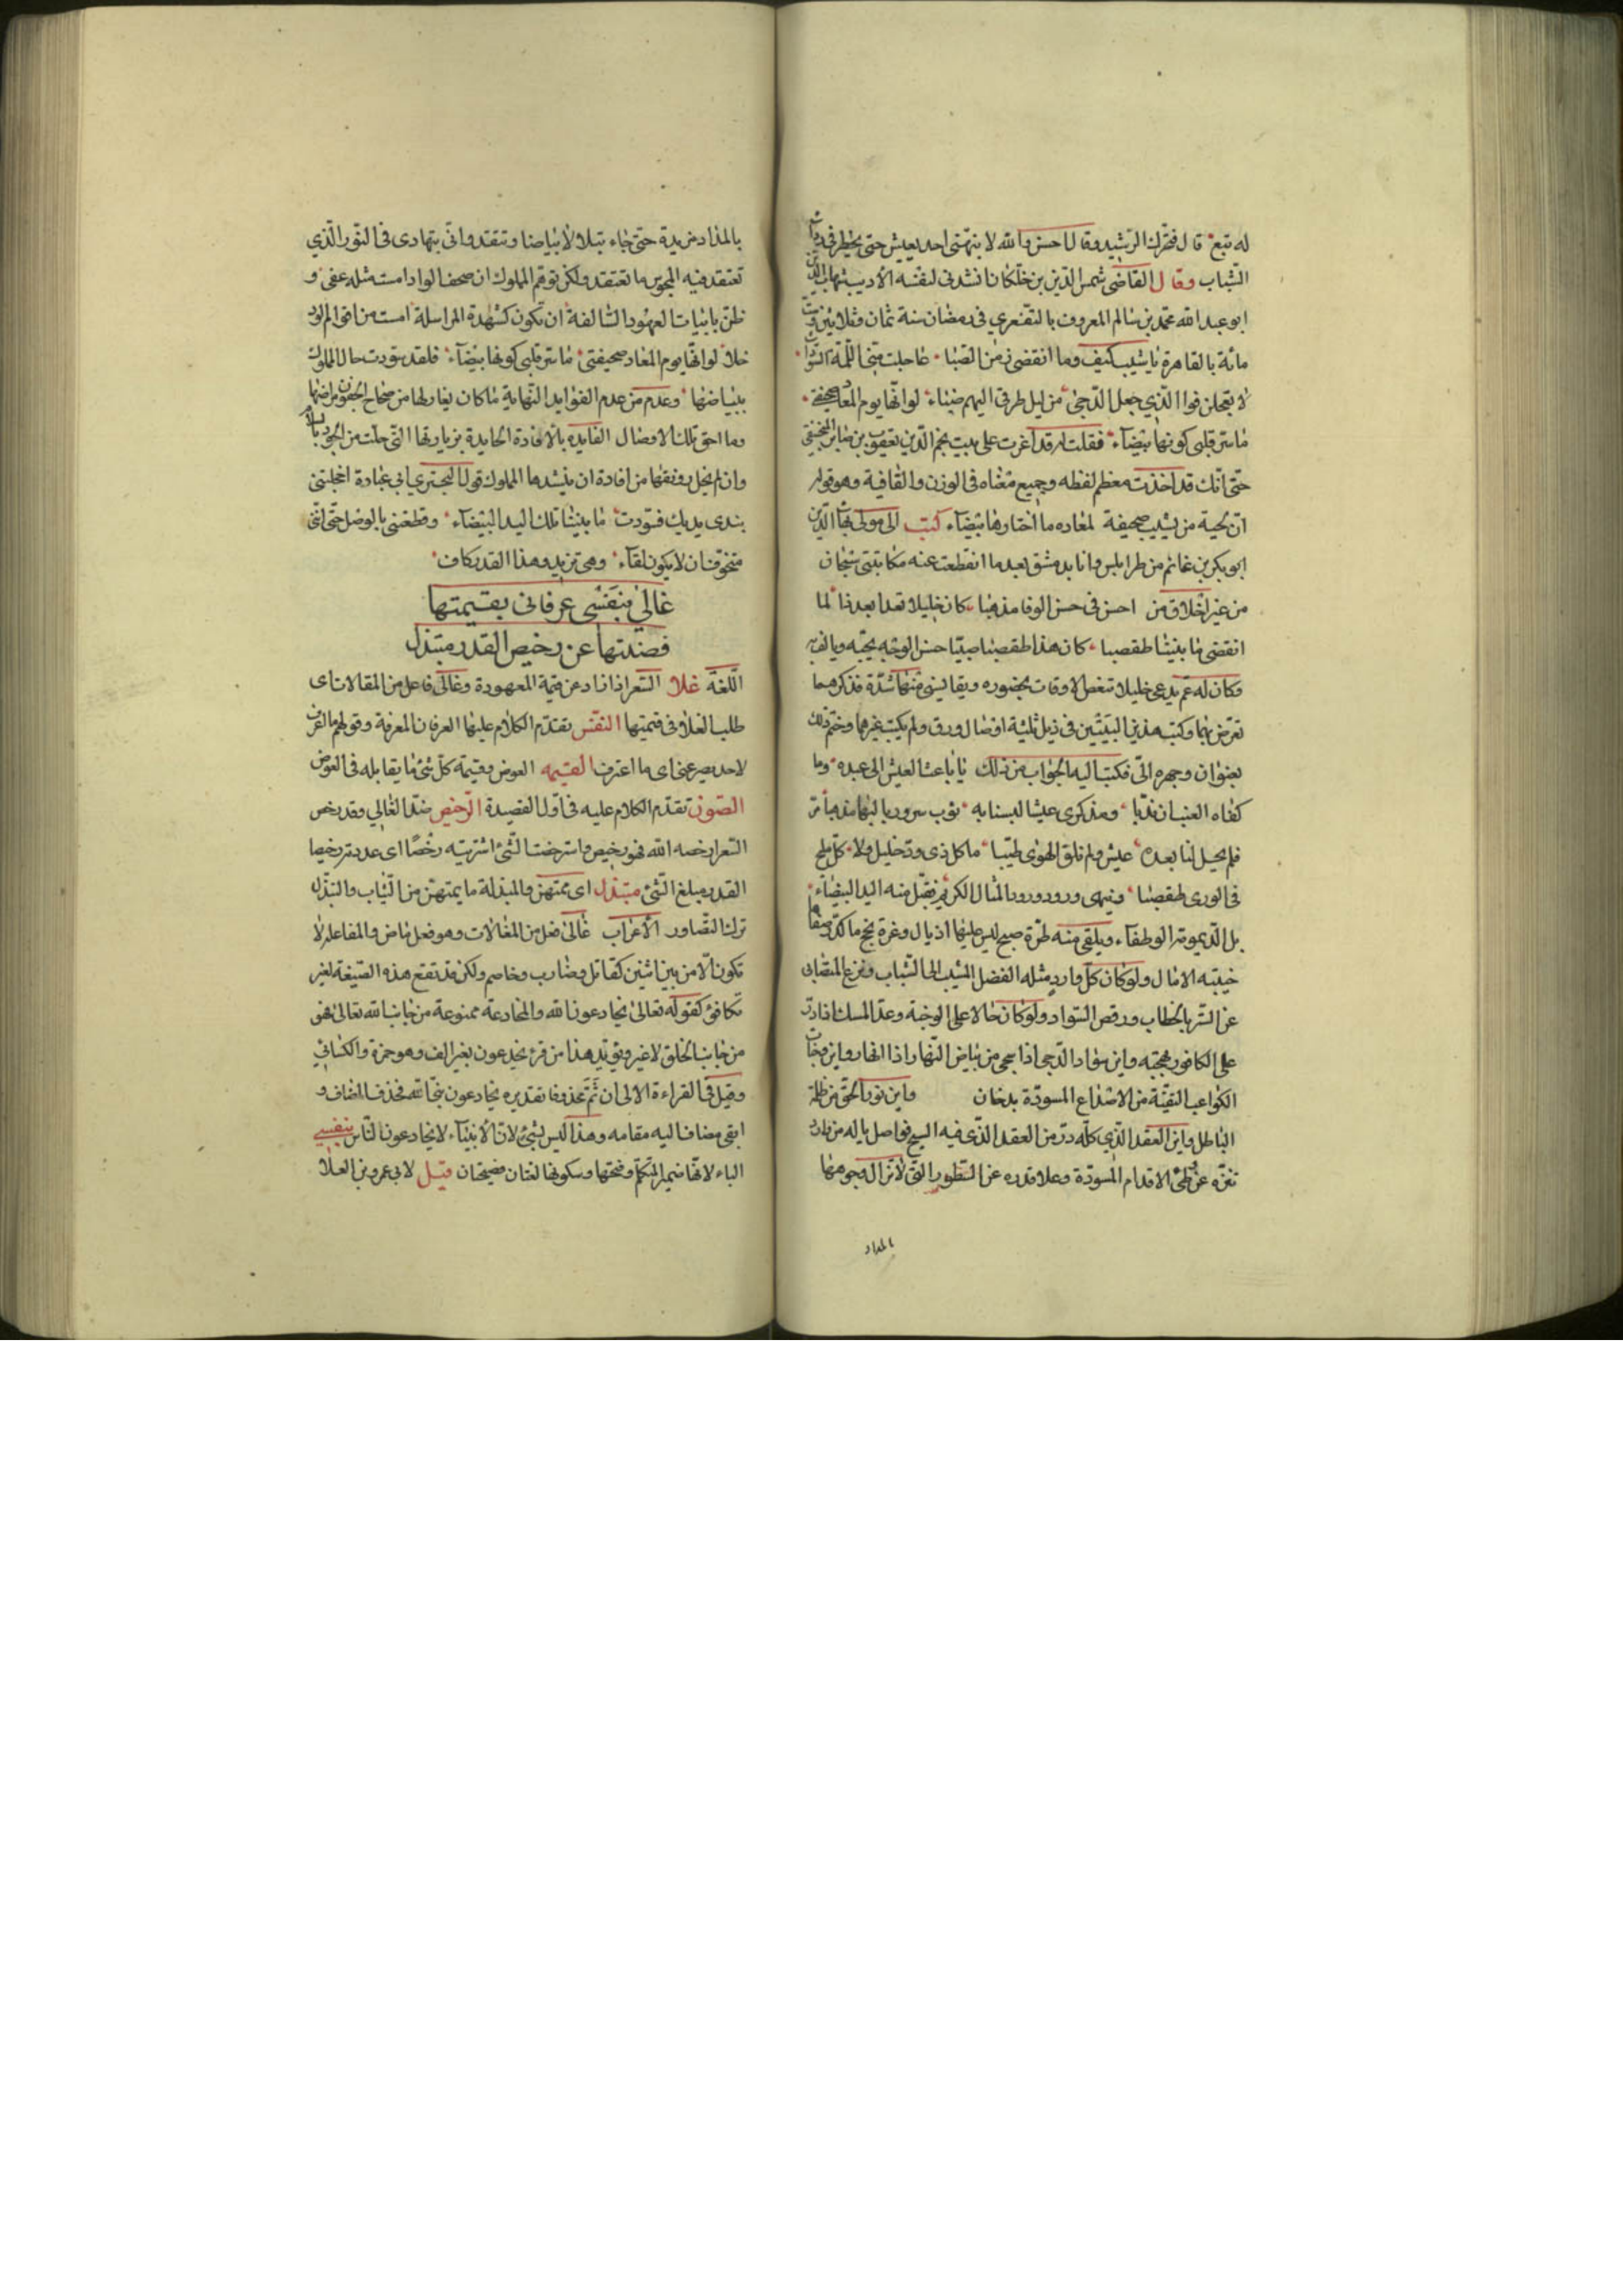 له تبع قال فتحرك الرشيد وقال احسن والله لا يتهنى احد بعيش حتى يخطر في رداء
الشباب وقال القاضي شمس الدين بن خلكان انشدني لنفسه الأديب شهاب الدين
ابو عبد الله محمد بن سالم المعروف بالتلعفري في رمضان سنة ثمان وثلاثين وست
مائة بالقاهرة يا شيب كيف وما انقضى زمن الصبا عاجلت مني اللمة السوداء
لا تعجلن فوا الذي جعل الدجى من ليل طرتي البهيم ضياء لو انها يوم المعاد صحيفتي
ما سر قلبي كونها بيضاء فقلت له قد اغرت على بيت نجم الدين يعقوب بن صابر المنجنيقي
حتى انك قد اخذت معظم لفظه وجميع معناه في الوزن والقافية وهو قوله
ان لحية من يشيب صحيفة لمعاده ما اختارها بيضاء كتب الى مولى بهاء الدين
ابو بكر بن غانم من طرابلس وانا بدمشق بعد ما انقطعت عنه مكاتبتي بيتان
من غير اخلاق من احسن في حسن الوفا مذهبا كان خليلا فغدا بعد ذا لما
انقضى ما بيننا طقصبا كان هذا طقصبا صبيا حسن الوجه يحبه ويالفه
وكان له عم يدعى خليلا تنغص الاوقات بحضوره ويقاسي منها شدة فذكرهما
تعرض بهما وكتب هذين البيتين في ذيل ثلثة اوصال ورق ولم يكتب غيرهما وختم ذلك
بعنوان وجهزه الي فكتبت اليه الجواب من ذلك يا باعثا العيش الى عبده وما
كفاه العتبان ندبا ومذكري عيشا لبسنا به ثوب سرور بالبها مذهبا مر
فلم يحل لنا بعده عيش ولم نلق الهوى طيبا ما كل ذي ود خليل ولا كل مليح
في الورى طقصبا وينهى ورود ورود المثال الكريم فقبل منه اليد البيضاء
بل الديمة الوطفاء ويلقى منه طرة صبح ليس عليها اذيال وغرة نجح ما كدر صفاها
خيبة الامال ولو كان كل وارد مثله الفضل المشيب الى الشباب ونزع المتصابي
عن الستر بالخطاب ورفض السواد ولو كان خالا على الوجنة وعد المسك اذا ذر
على الكافور هجنة واين سواد الدجى اذا سجى من بياض النهار اذا انهار واين وجنات
الكواعب النقية من الاصداغ المسودة بدخان واين نور الحق من ظلمة
الباطل واين العقد الذي كله در من العقد الذي فيه السبج فواصل ياله من وارد
تنزه عن وطئ الاقدام المسودة وعلا قدره عن السطور التي لا تزال وجوهها
بالمداد
بالمداد مربدة حتى جاء يتلألأ بياضا ويتقد وافي يتهادى في النور الذي
تعتقد فيه المجوس ما تعتقد ولكن توهم المملوك ان صحف الوداد امست مثله عفى و
ظن بابيات العهود السالفة ان تكون كشهدة المراسلة امست من اقوالم الود
خلا لو انها يوم المعاد صحيفتي ما سر قلبي كونها بيضاء فلقد سودت حال المملوك
ببياضها وعدم من عدم الفوايد النهاية ما كان يغازلها من صحاح الجفون مراضها
وما احق تلك الاوصال الفايدة بالافادة الجايدة بزيارتها التي حلت من الجود بالسلام
وان لم يخل رونقها من افادة ان ينشدها المملوك قول البحتري ابي عبادة اخجلتني
بندى يديك فسودت ما بيننا تلك اليد البيضاء وقطعتني بالوصل حتى انني
متخوف ان لا يكون لقاء وهي تزيد وهذا القدر كاف
غالى بنفسي عرفاني بقيمتها
فصنتها عن رخيص القدر مبتذل
اللغة غلا السعر اذا زاد عن قيمة المعهودة وغالى فاعل من المغالات اى
طلب الغلا في قيمتها النفس تقدم الكلام عليها العرفان المعرفة وقولهم ما اعرف
لاحد يصرعني اى ما اعترف القيمه العوض وقيمة كل شئ ما يقابله في العوض
الصون تقدم الكلام عليه في اول القصيدة الرخيص ضد الغالي وقد رخص
السعر ارخصه الله فهو رخيص واسترخصت الشئ اشتريته رخصا اى عددته رخيصا
القدر مبلغ الشئ مبتذل اى ممتهن والمبذلة ما يمتهن من الثياب والتبذل
ترك التصاون الاعراب غالى فعل من المغالات وهو فعل ماض والمفاعلة لا
تكون الا من بين اثنين كقاتل وضارب وخاصم ولكن قد تقع هذه الصيغة لغير
تكافئ كقوله تعالى يخادعون الله والمخادعة ممنوعة من جانب الله تعالى فهى
من جانب الخلق لا غير ويؤيد هذا من قرئ يخدعون بغير الف وهو حمزة والكسائي
وقيل في القراءة الاولى ان ثم محذوفا تقديره يخادعون نبي الله فحذف المضاف و
ابقى مضاف اليه مقامه وهذا ليس بشئ لان الانبياء لا يخادعون الناس بنفسي
الباء لانها ضمير المتكلم وفتحها وسكونها لغتان فصيحتان قيل لابي عمرو بن العلا